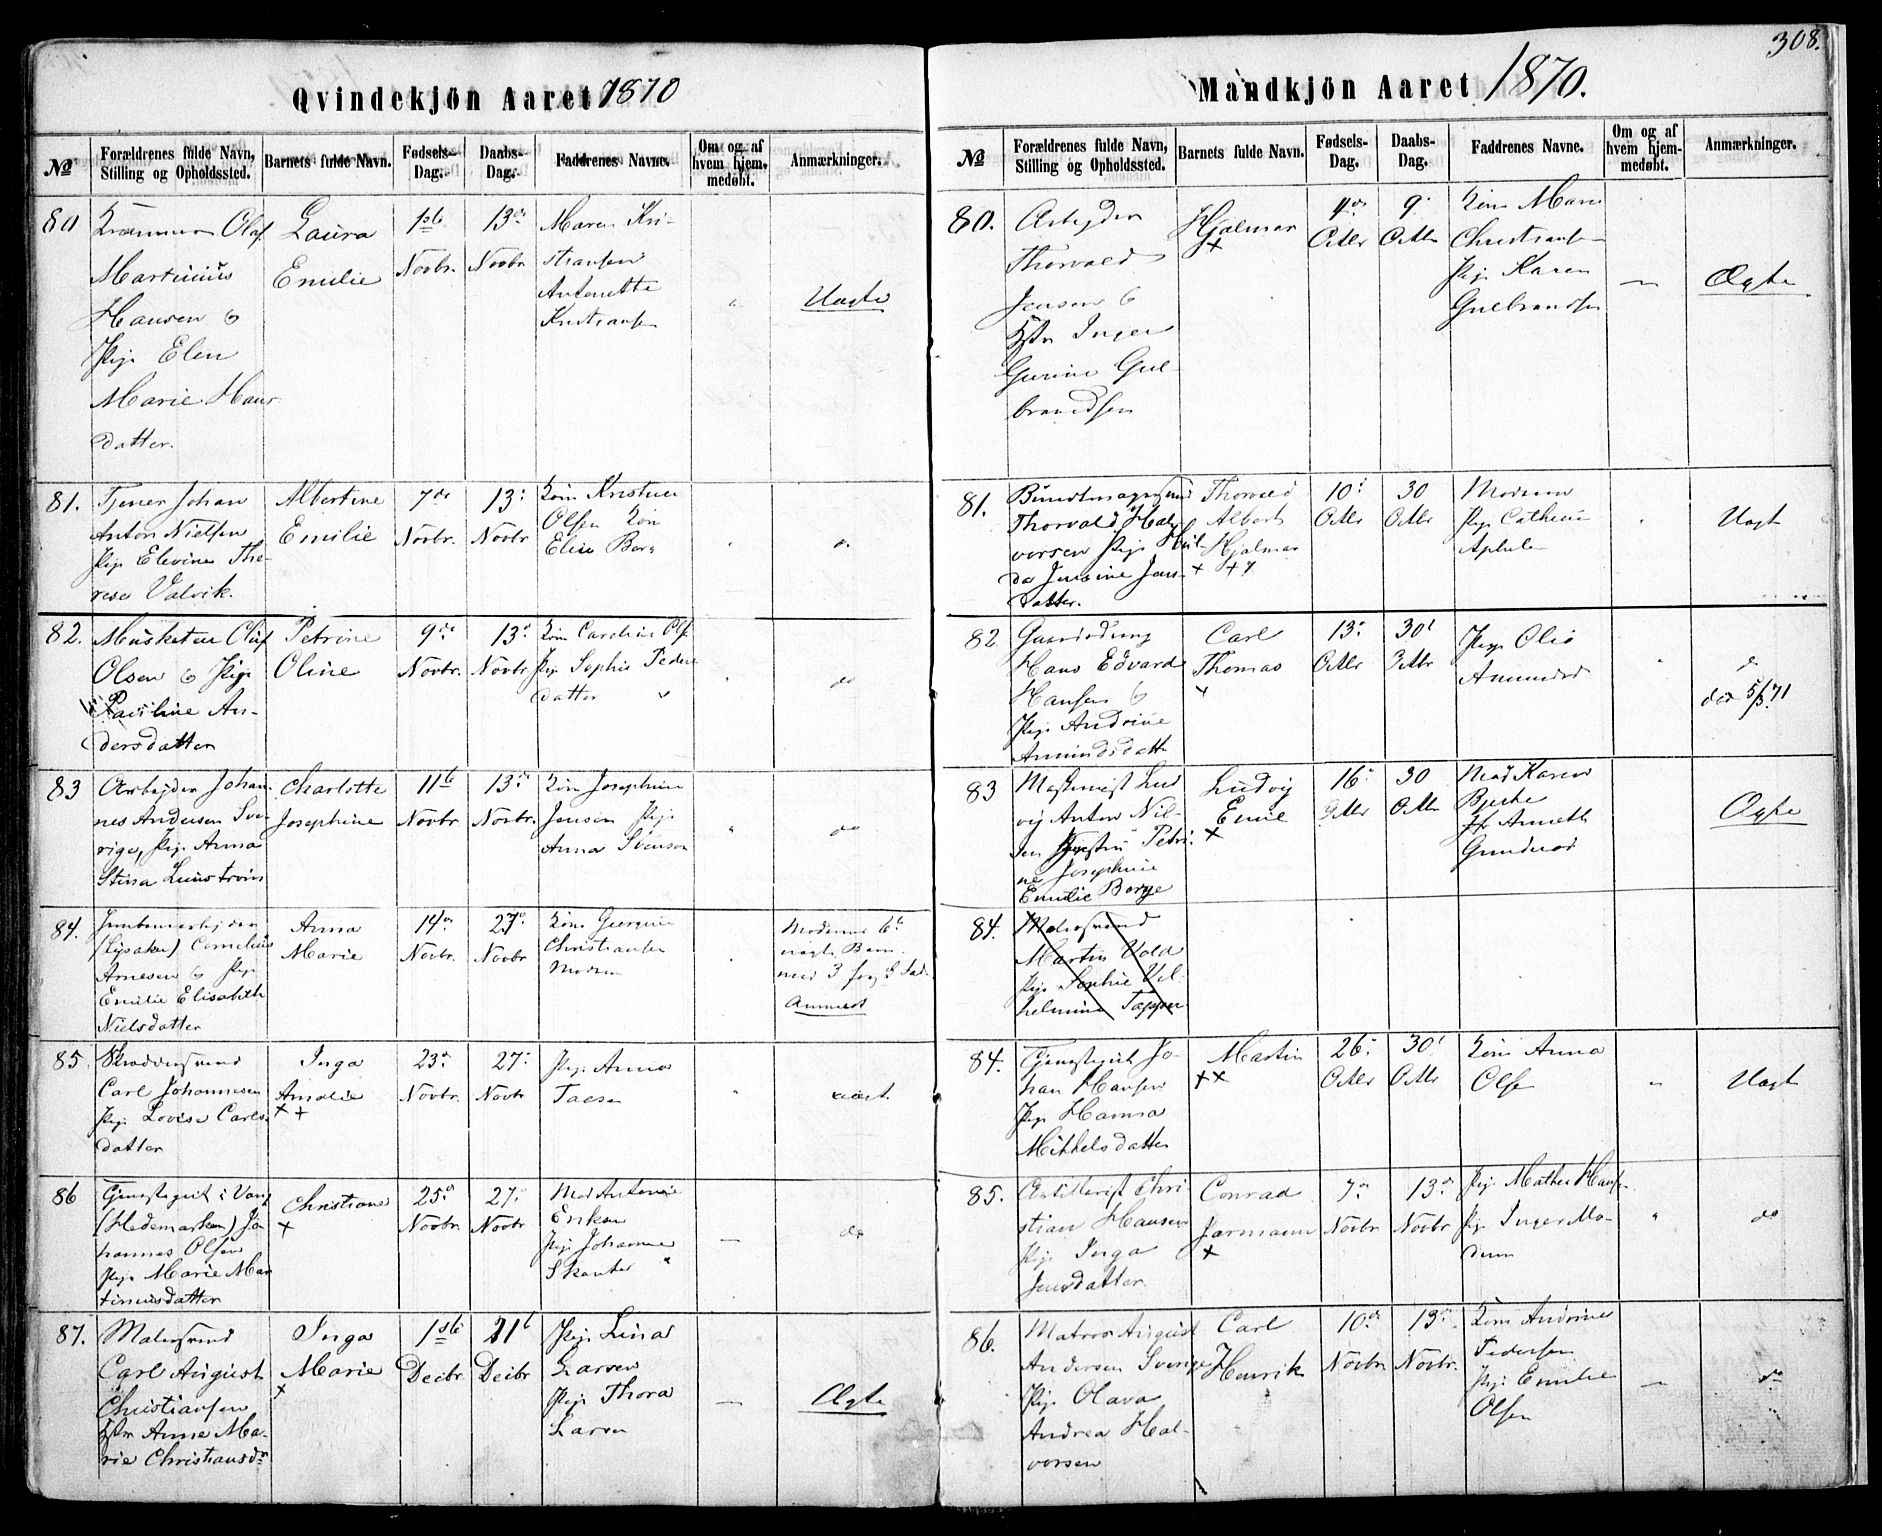 308.
Qvindekjön Aaret 1870
№
Forældrenes fulde Navn,
Stilling og Opholdssted.
Barnets fulde Navn.
Fødsels-
Dag.
Daabs-
Dag.
Faddrenes Navne.
Om og af
hvem hjem-
medøbt.
Anmærkninger.
80
Olaf
Martinius
Hansen &
Pige Elen
Marie Hans
datter.
Laura
Emilie
1ste
Novbr.
13de
Novbr
Maren Kri-
stiansen
Antonette
Kristiansen
Uægte
81.
Tjener Johan
Anton Nielsen
Pige Elevine The-
rese Valvik.
Albertine
Emilie
7de
Novbr.
13:
Novbr
Kone Kristine
Olsen Kone
Elise Berg
82.
Musketer Oluf
Olsen & Pige
Pauline An-
dersdatter
Petrine
Oline
9de
Novbr.
13de
Novbr
Kone Caroline Olse
Pige Sophie Peders
datter
do
83
Arbeider Johan-
nes Andersen Sve-
rige, Pige Anna
Stina Lundstrøm
Charlotte
Josephine
11te
Novbr.
13de
Novbr.
Kone Josephine
Jensen Pige
Anna Svenson
do
84.
Jernbanearbejder
(Lysaker) Cornelius
Arnesen & Pige
Emilie Elisabeth
Nielsdatter
Anna
Marie
14de
Novbr.
27de
Novbr
Kone Georgine
Christiansen
Modren
Modrens 6te
uægte Barn
med 3 forsk. Fad.
Anmeldt
85.
Skræddersvend
Carl Johannesen
Pige Lovise Carls-
datter
Inga
Amalie
23de
Novbr.
27:
Novbr
Pige Anna
uægt
86
Gjørtlegut i Vang
(Hedemarken) Jo-
hannes Olsen
Pige Marie Mar
tinusdatter
Christiane
25de
Novbr.
27:
Novbr.
Mad Antonie
Eriksen
Pige Johanne
do
87.
Malersvend
Carl August
Christiansen
Hstr Anne Ma-
rie Christiansdr
Inga
Marie
1ste
Decbr
21te
Decbr
Pige Lina
Larsen
Pige Thora
Larsen
Ægte
Mandkjön Aaret 1870.
№
Forældrenes fulde Navn,
Stilling og Opholdssted.
Barnets fulde Navn.
Fødsels-
Dag.
Daabs-
Dag.
Faddrenes Navne.
Om og af
hvem hjem-
medøbt.
Anmærkninger.
80.
Arbejder
Thorvald
Jensen &
Hstr Inger
Gurine Gul-
brandsen
Hjalmar
4de
Octbr
9:
Octbr
Kone Maren
Christiansen
Pige Karen
Gulbrandsen
Ægte
81.
Bundtmagersvend
Thorvald Hal-
vorsen Pige Hul-
da Jensine Jens-
datter.
Thorvald
Albert
Hjalmar
10:
Octbr
30
Octbr
Modren
Pige Cathrine
Uægt
82
Gaardsdreng
Hans Edvard
Hansen &
Pige Andrine
Amundsdatt
Carl
Thomas
13:
Octbr
30:
Octbr
Pige Olia
Amundsd
do
død 5/3 71
83
Maskinist Lud
vig Anton Nil-
sen Hustru Petri-
ne Josephine
Emilie Berge
Ludvig
Emil
16:
Octbr
30
Octbr
Mad Karen
Bjerke
Anneth
Gunderod
Ægte
84.
Malersvend
Martin Vold
Pige Sophie Vil-
helmine Tapper
84.
Gjørtlegut Jo-
han Hansen
Pige Hanna
Mikkelsdatter
Martin
26:
Octbr
30:
Octbr
Kone Anna
Olsen
Uægt
85.
Artillerist Chri-
stian Hansen
Pige Inga
Jensdatter
Conrad
Jarmann
7de
Novbr
13de
Novbr
Pige Mathea Hansen
Pige Inger Mo-
dum
do
86.
Matros August
Andersen Sverige
Pige Olava
Andrea Hal-
vorsen
Carl
Henrik
10de
Novbr
13de
Novbr.
Kone Andrine
Pedersen
Pige Emilie
Olsen
do